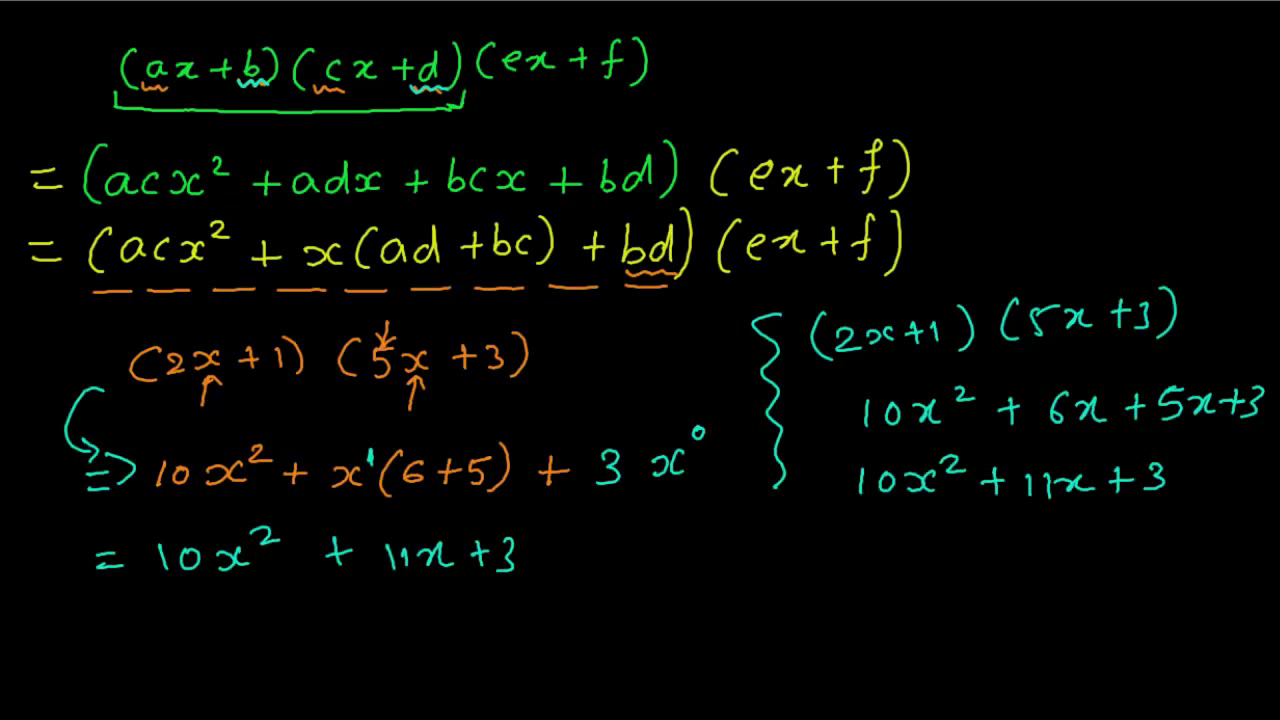 (ax+b)(cx+d)(ex+f)
= (acx² + adx + bcx + bd) (ex + f)
= (acx² + x(ad +bc) + bd) (ex+f)
(2x+1) (5x +3)
=> 10x² + x¹(6+5) + 3 x⁰
= 10x² + 11x +3
(2x+1) (5x +3)
10x² + 6x +5x+3
10x² + 11x +3